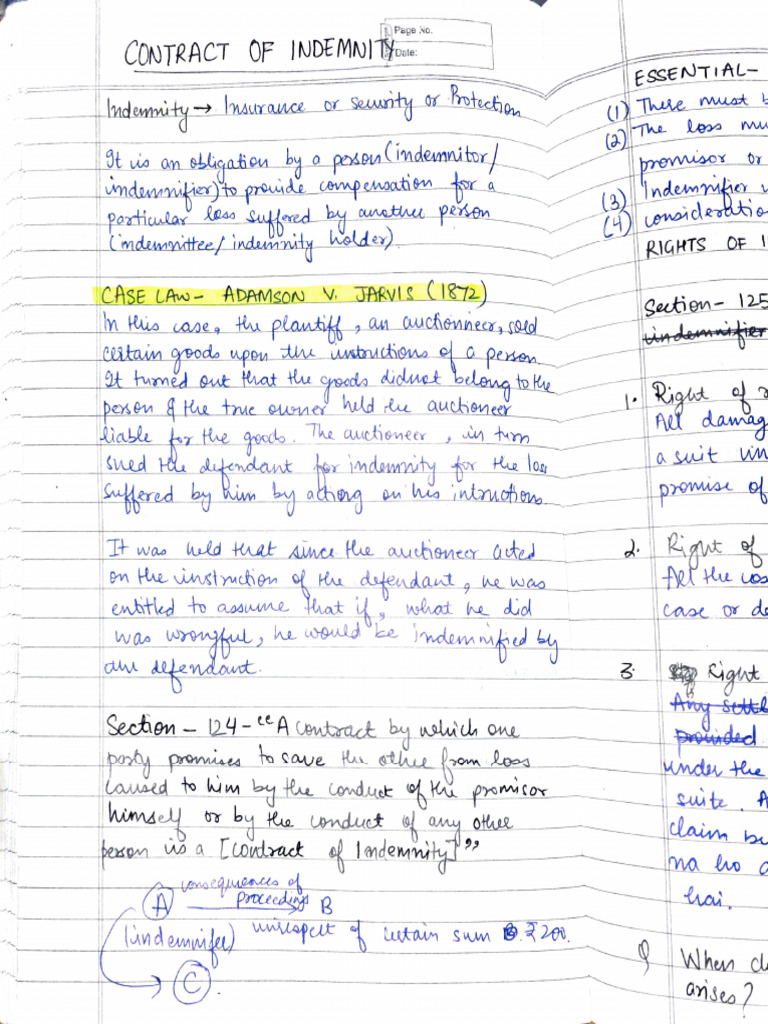 Page No.
Date:
CONTRACT OF INDEMNITY
Indemnity → Insurance or security or Protection
It is an obligation by a person (indemnitor/
indemnifier) to provide compensation for a
particular loss suffered by another person
(indemnittee/indemnity holder).
CASE LAW - ADAMSON V. JARVIS (1872)
In this case, the plantiff, an auctionneer, sold
certain goods upon the instructions of a person.
It turned out that the goods didnot belong to the
person & the true owner held the auctioneer
liable for the goods. The auctioneer, in turn
sued the defendant for indemnity for the loss
suffered by him by acting on his intructions.
It was held that since the auctioneer acted
on the instruction of the defendant, he was
entitled to assume that if, what he did
was wrongful, he would be indemnified by
the defendant.
Section - 124 - "A contract by which one
party promises to save the other from loss
caused to him by the conduct of the promisor
himself or by the conduct of any other
person is a [Contract of Indemnity]"
consequences of
A proceedings B
(indemnifer) in respect of certain sum ₹200.
C
ESSENTIAL-
(1) There must b
(2) The loss mu
promisor or
(3) Indemnifier
(4) consideratio
RIGHTS OF I
Section - 125
indemnifier
1. Right of
All damag
a suit in
promise of
2. Right of
All the cos
case or de
3. Right
Any settl
provided
under the
suite. A
claim bu
na ho
hai.
Q When d
arises?